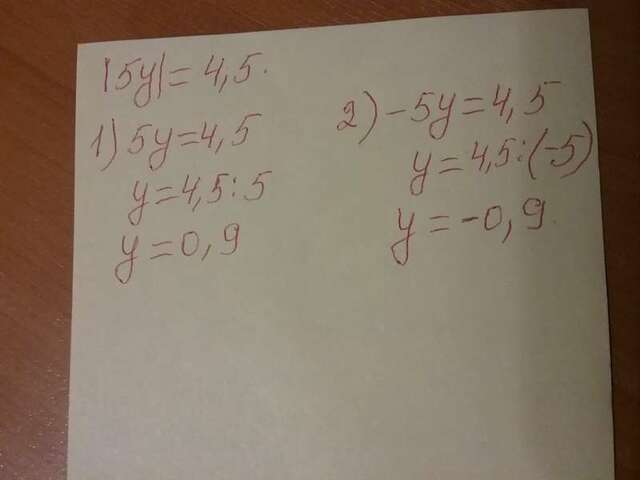 |5y|= 4,5.
1) 5y=4,5
y=4,5:5
y=0,9
2) -5y=4,5
y=4,5:(-5)
y=-0,9.